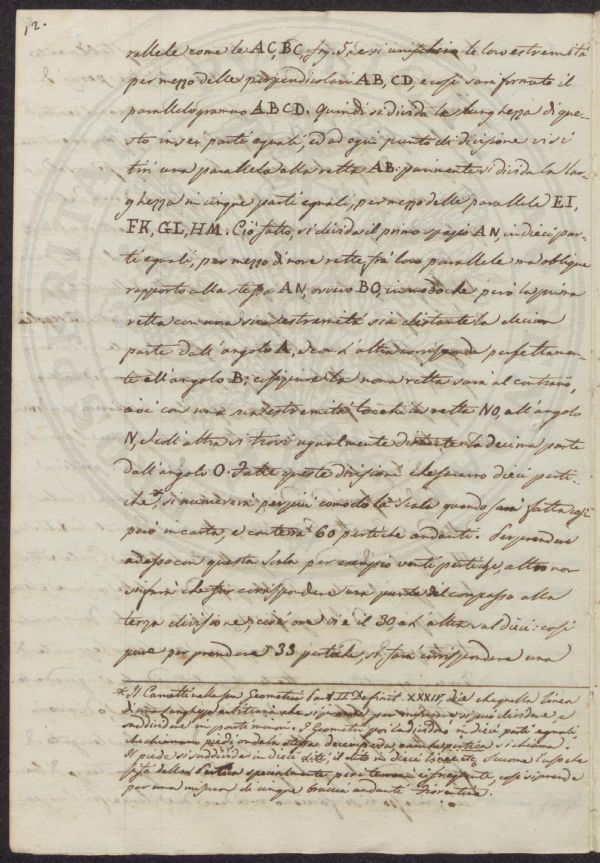 12.
rallele come le AC, BC, fig. 5, e si unischino le loro estremità
per mezzo delle perpendicolari AB, CD, e così sarà formato il
parallelogrammo ABCD. Quindi si divida la lunghezza di que-
sto in sei parti eguali, ed ad ogni punto di divisione vi si
tiri una parallela alla retta AB: parimente si divida la lar-
ghezza in cinque parti eguali, per mezzo delle parallele EI,
FK, GL, HM. Ciò fatto, si divida il primo spazio AN, in dieci par-
ti eguali, per mezzo di nove rette fra loro parallele ma oblique
rapporto alla stessa AN, ovvero BO, in modo che però la prima
retta con una sua estremità sia distante la decima
parte dall'angolo A, e con l'altra corrisponda perfettamen-
te all'angolo B; così pure la nona retta sarà al contrario,
cioè con una sua estremità tocchi la retta NO, all'angolo
N, e coll'altra si trovi ugualmente distante la decima parte
dall'angolo O. Fatte queste divisioni che saranno dieci perti-
che*, si numererà per più comodo la Scala quando sarà fatta così
però in carta, e conterrà 60 pertiche andanti. Per prendere
adesso con questa Scala per esempio venti pertiche, altro non
si farà che far corrispondere una punta del compasso alla
terza divisione, cioè ove vi è il 30, e l'altra al dieci: così
pure per prendere 33 pertiche, si farà corrispondere una
* Il Cametti nella sua Geometria Def. XXXIV, dice che quella linea
di una lunghezza arbitraria che si prende per misura e si può dividere e
suddividere in parti minori. I Geometri poi la dividono in dieci parti eguali,
che chiamano piedi, onde la stessa decempeda o anche pertica si chiama.
Il piede si suddivide in dieci diti, il dito in dieci linee etc. Siccome l'uso che
fassi della Pertica specialmente però terreni è frequente, così si prende
per una misura di cinque braccia andanti Fiorentine.